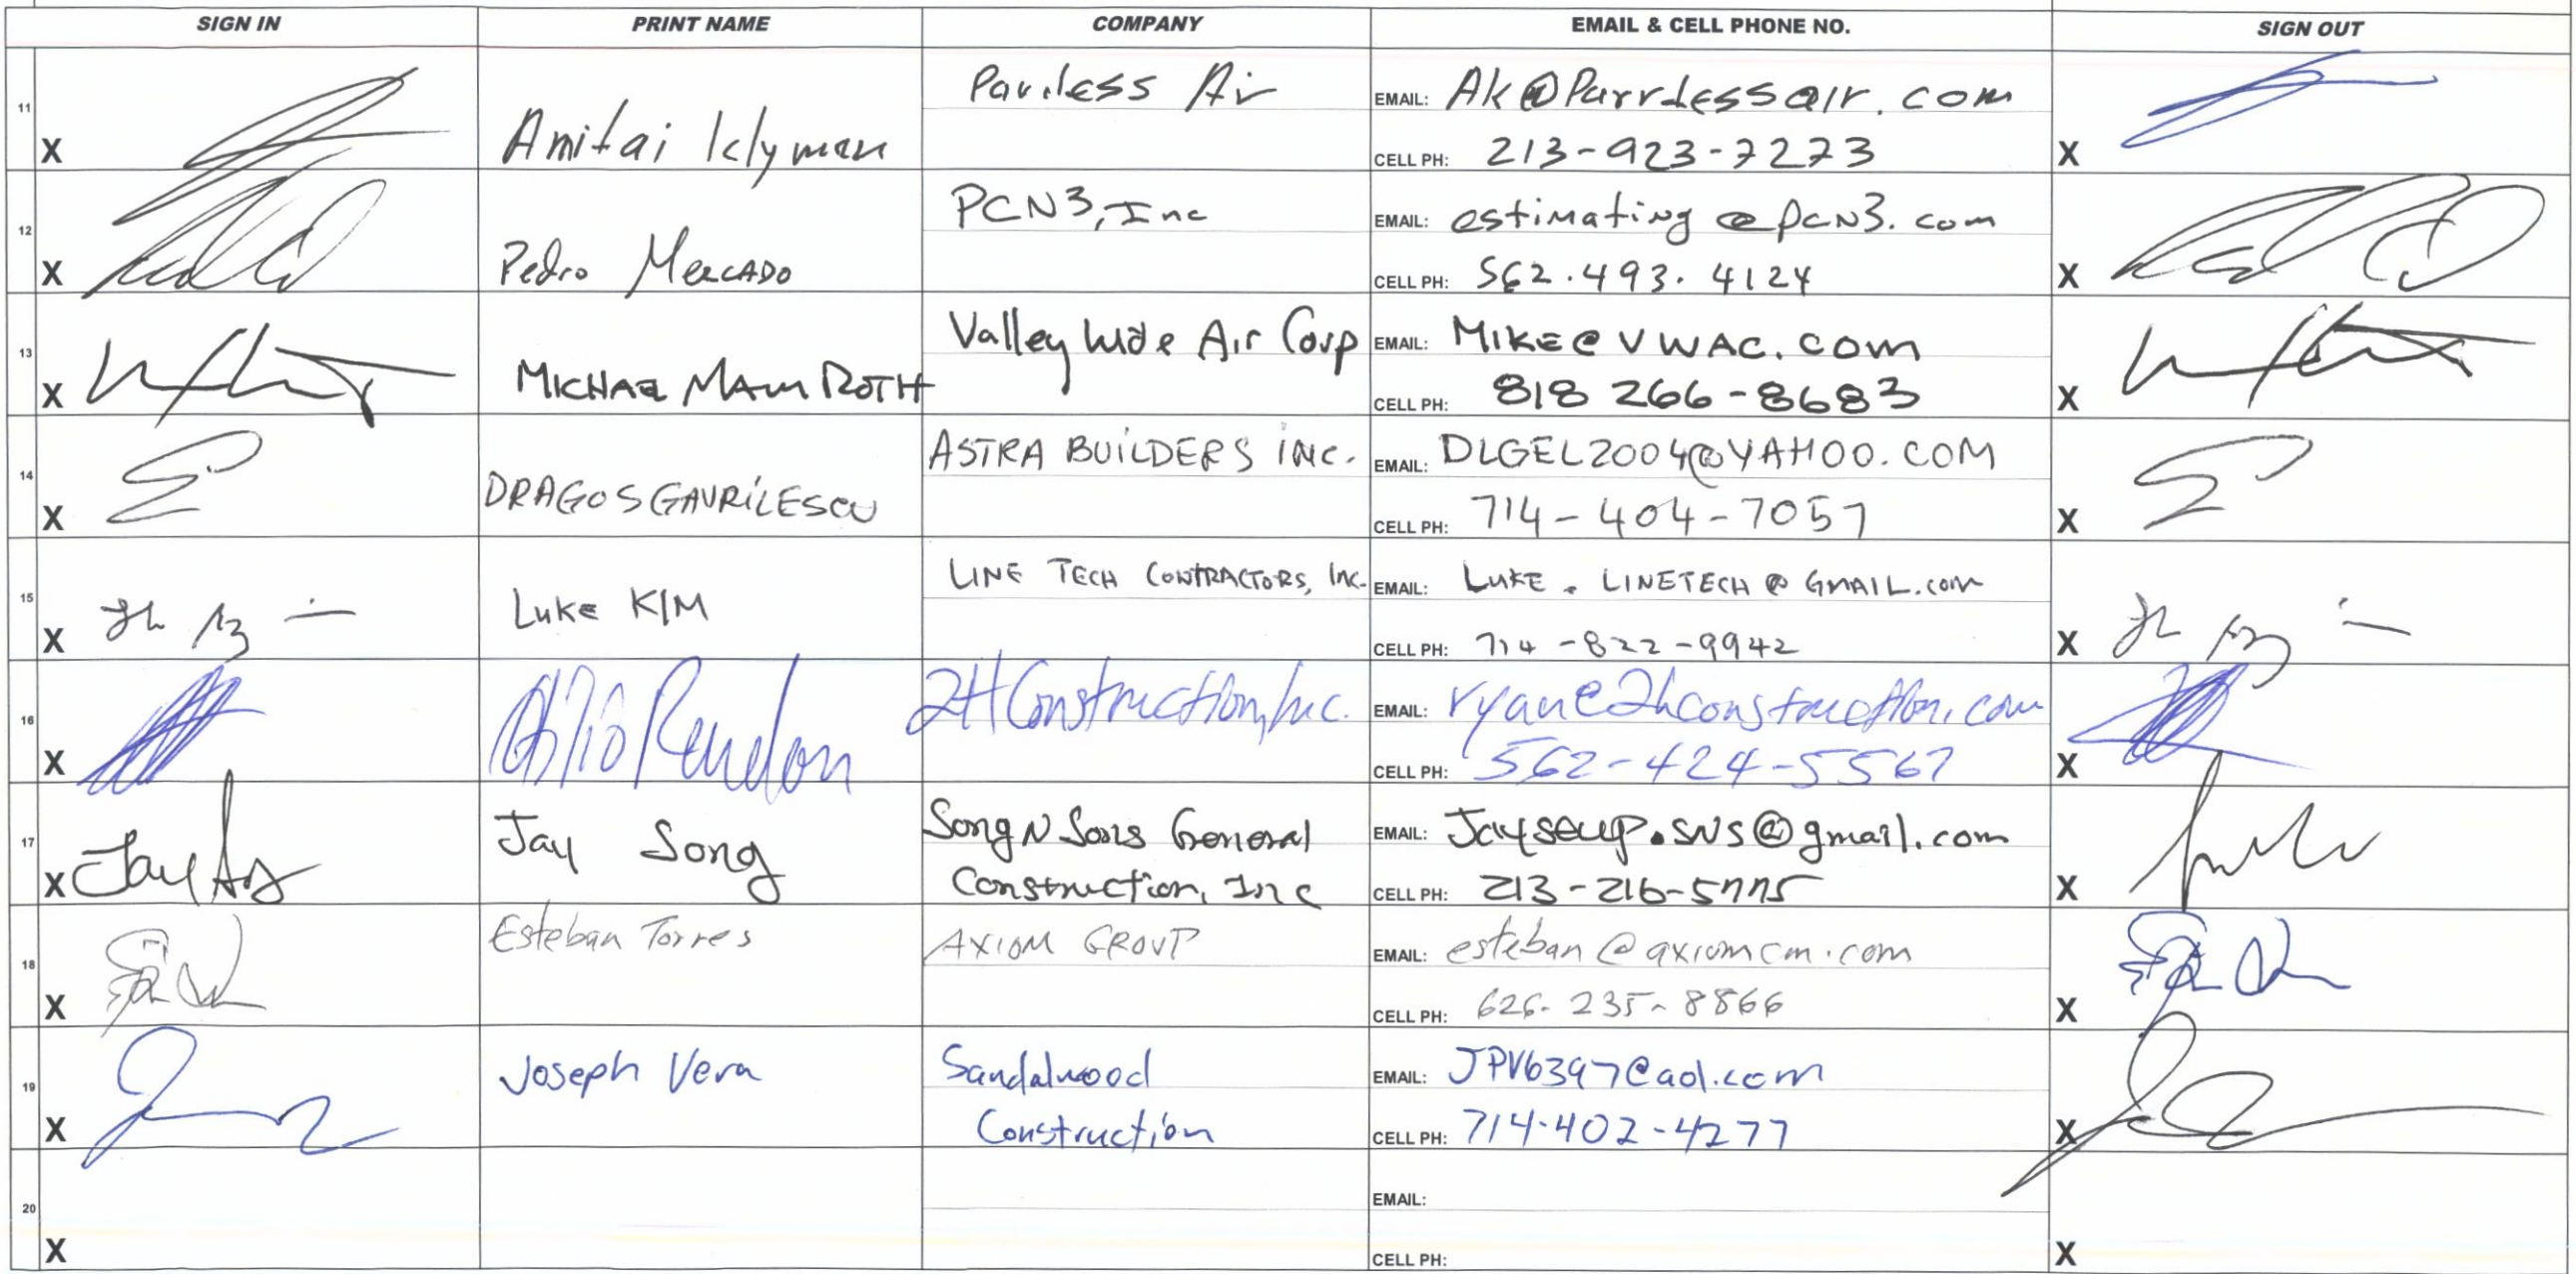 SIGN IN PRINT NAME COMPANY EMAIL & CELL PHONE NO. SIGN OUT
11 X Amitai Klyman Air EMAIL: X
CELL PH: 213-923-7273
12 X Pedro MERCADO PCN3, Inc EMAIL: estimating@pcn3.com X
CELL PH: 562.493.4124
13 X MICHAEL ROTH Valley Wide Air Corp EMAIL: MIKE@VWAC.COM X
CELL PH: 818 266-8683
14 X DRAGOS GAVRILESCU ASTRA BUILDERS INC. EMAIL: DLGEL2004@YAHOO.COM X
CELL PH: 714-404-7057
15 X LUKE KIM LINE TECH CONTRACTORS, INC. EMAIL: LUKE.LINETECH@GMAIL.COM X
CELL PH: 714-822-9942
16 X Rendon 2H Construction, Inc. EMAIL: ryan@2hconstruction.com X
CELL PH: 562-424-5567
17 X Jay Song Song N Sons General EMAIL: Jayseup.sns@gmail.com X
Construction, Inc CELL PH: 213-216-5775
18 X Esteban Torres AXIOM GROUP EMAIL: esteban@axiomcm.com X
CELL PH: 626-235-8866
19 X Joseph Vera Sandalwood EMAIL: JPV6397@aol.com X
Construction CELL PH: 714-402-4277
20 X EMAIL: X
CELL PH: